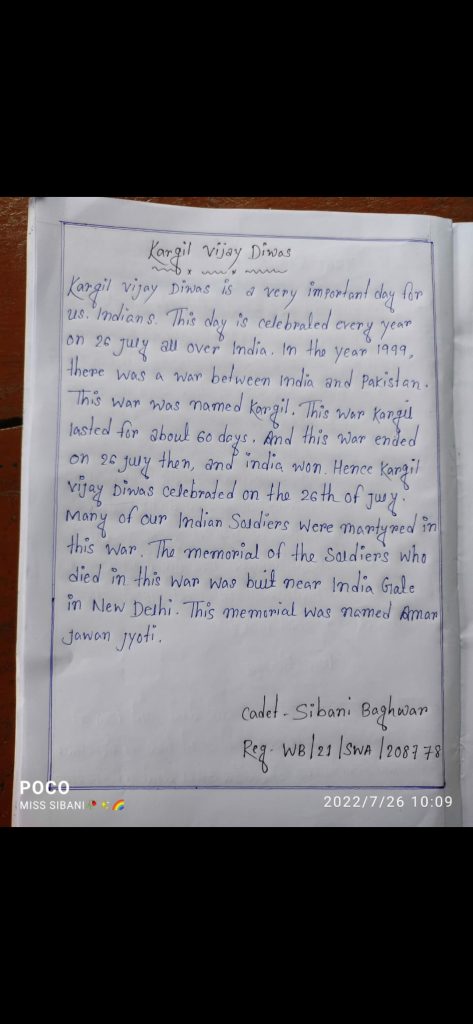 Kargil Vijay Diwas
Kargil Vijay Diwas is a very important day for
us. Indians. This day is celebrated every year
on 26 july all over India. In the year 1999,
there was a war between India and Pakistan.
This war was named Kargil. This war Kargil
lasted for about 60 days. And this war ended
on 26 july then, and india won. Hence Kargil
Vijay Diwas celebrated on the 26th of july.
Many of our Indian Soldiers were martyred in
this war. The memorial of the Soldiers who
died in this war was built near India Gate
in New Delhi. This memorial was named Amar
jawan jyoti.
Cadet - Sibani Baghwar
Reg. WB/21/SWA/208778
POCO
MISS SIBANI
2022/7/26 10:09